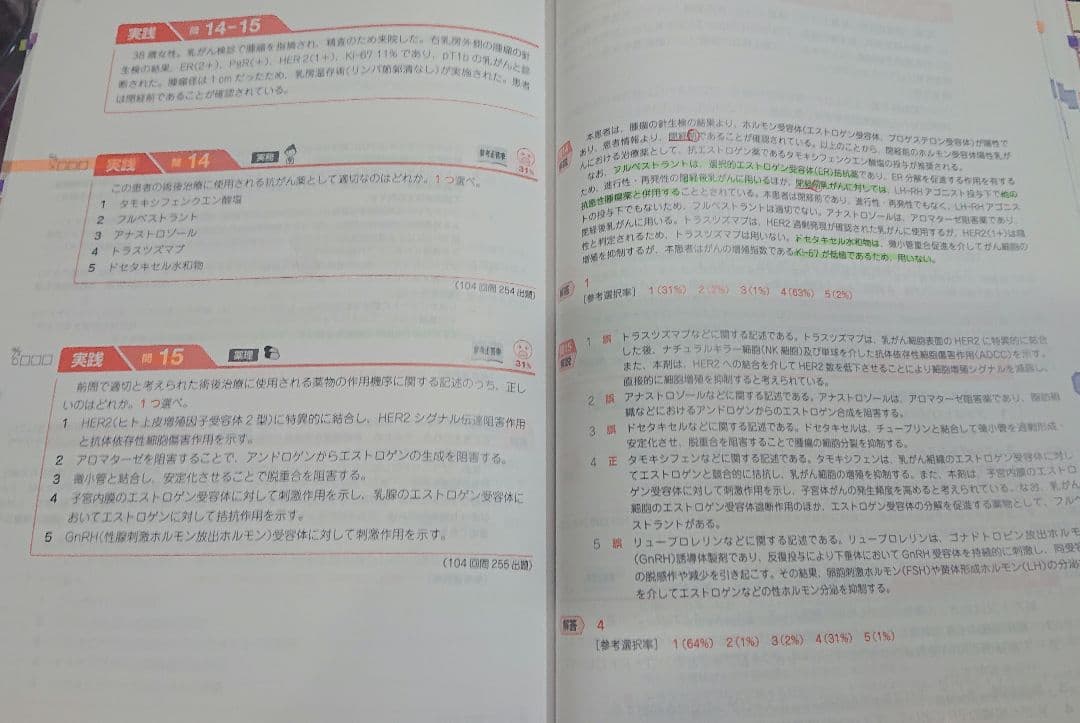 実践 問 14-15
38歳女性。乳がん検診で腫瘤を指摘され、精査のため来院した。右乳房外側の腫瘤の針
生検の結果、ER(2+)、PgR(+)、HER2(1+)、Ki-67 11%であり、pT1bの乳がんと診
断された。腫瘤径は1cmだったため、乳房温存術(リンパ節郭清なし)が実施された。患者
は閉経前であることが確認されている。
実践 問 14 実務
参考正答率
31%
この患者の術後治療に使用される抗がん薬として適切なのはどれか。1つ選べ。
1 タモキシフェンクエン酸塩
2 フルベストラント
3 アナストロゾール
4 トラスツズマブ
5 ドセタキセル水和物
(104回問254出題)
実践 問 15 薬理
参考正答率
31%
前問で適切と考えられた術後治療に使用される薬物の作用機序に関する記述のうち、正し
いのはどれか。1つ選べ。
1 HER2(ヒト上皮増殖因子受容体2型)に特異的に結合し、HER2シグナル伝達阻害作用
と抗体依存性細胞傷害作用を示す。
2 アロマターゼを阻害することで、アンドロゲンからエストロゲンの生成を阻害する。
3 微小管と結合し、安定化させることで脱重合を阻害する。
4 子宮内膜のエストロゲン受容体に対して刺激作用を示し、乳腺のエストロゲン受容体に
おいてエストロゲンに対して拮抗作用を示す。
5 GnRH(性腺刺激ホルモン放出ホルモン)受容体に対して刺激作用を示す。
(104回問255出題)
本患者は、腫瘤の針生検の結果より、ホルモン受容体(エストロゲン受容体、プロゲステロン受容体)が陽性で
あり、患者情報より、閉経前であることが確認されている。以上のことから、閉経前のホルモン受容体陽性乳が
んにおける治療薬として、抗エストロゲン薬であるタモキシフェンクエン酸塩の投与が推奨される。
なお、フルベストラントは、選択的エストロゲン受容体(ER)拮抗薬であり、ER分解を促進する作用を有する
ため、進行性・再発性の閉経後乳がんに用いるほか、閉経前乳がんに対しては、LH-RHアゴニスト投与下で他の
抗悪性腫瘍薬と併用することとされている。本患者は閉経前であり、進行性・再発性でもなく、LH-RHアゴニス
トの投与下でもないため、フルベストラントは適切でない。アナストロゾールは、アロマターゼ阻害薬であり、
閉経後乳がんに用いる。トラスツズマブは、HER2過剰発現が確認された乳がんに使用するが、HER2(1+)は陰
性と判定されるため、トラスツズマブは用いない。ドセタキセル水和物は、微小管重合促進を介してがん細胞の
増殖を抑制するが、本患者はがんの増殖指数であるKi-67が低値であるため、用いない。
解答 1
[参考選択率] 1(31%) 2(2%) 3(1%) 4(63%) 5(2%)
問15
解説
1 誤 トラスツズマブなどに関する記述である。トラスツズマブは、乳がん細胞表面のHER2に特異的に結合
した後、ナチュラルキラー細胞(NK細胞)及び単球を介した抗体依存性細胞傷害作用(ADCC)を示す。
また、本剤は、HER2への結合を介してHER2数を低下させることにより細胞増殖シグナルを減弱し、
直接的に細胞増殖を抑制すると考えられている。
2 誤 アナストロゾールなどに関する記述である。アナストロゾールは、アロマターゼ阻害薬であり、脂肪組
織などにおけるアンドロゲンからのエストロゲン合成を阻害する。
3 誤 ドセタキセルなどに関する記述である。ドセタキセルは、チューブリンと結合して微小管を過剰形成・
安定化させ、脱重合を阻害することで腫瘍の細胞分裂を抑制する。
4 正 タモキシフェンなどに関する記述である。タモキシフェンは、乳がん組織のエストロゲン受容体に対し
てエストロゲンと競合的に拮抗し、乳がん細胞の増殖を抑制する。また、本剤は、子宮内膜のエストロ
ゲン受容体に対して刺激作用を示し、子宮体がんの発生頻度を高めると考えられている。なお、乳がん
細胞のエストロゲン受容体遮断作用のほか、エストロゲン受容体の分解を促進する薬物として、フルベ
ストラントがある。
5 誤 リュープロレリンなどに関する記述である。リュープロレリンは、ゴナドトロピン放出ホルモ
(GnRH)誘導体製剤であり、反復投与により下垂体においてGnRH受容体を持続的に刺激し、同受容
の脱感作や減少を引き起こす。その結果、卵胞刺激ホルモン(FSH)や黄体形成ホルモン(LH)の分泌
を介してエストロゲンなどの性ホルモン分泌を抑制する。
解答 4
[参考選択率] 1(64%) 2(1%) 3(2%) 4(31%) 5(1%)